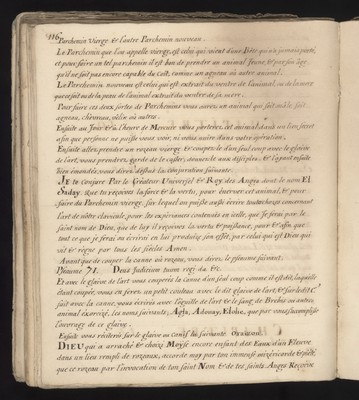 116
Parchemin Vierge & l'autre Parchemin nouveau.
Le Parchemin que l'on appelle vierge, est celui qui vient d'une Bête qui n'a jamais porté,
et pour faire un tel parchemin il est bon de prendre un animal Jeune & par son âge
qu'il ne soit pas encore capable du Coït, comme un agneau ou autre animal.
Le Parchemin nouveau est celui qui est extrait du ventre de l'animal, ou de la mere
Pour faire ces deux sortes de Parchemins vous aurez un animal qui soit mâle soit
agneau, chevreau, vélin ou autre.
Ensuite au Jour & à l'heure de Mercure vous porterez cet animal dans un lieu secret
afin que personne ne puisse vous voir, ni vous nuire dans votre opération.
Ensuite allez prendre un rozeau vierge & coupez-le d'un seul coup avec le glaive
de l'art, vous prendrez garde de le casser,
JE te Conjure Par le Créateur Universel & Roy des Anges dont le nom El
Saday, que tu reçoives la force & la vertu, pour écorcer cet animal & pour
faire du Parchemin vierge, sur lequel on puisse aussi écrire toutes choses concernant
l'art de notre clavicule, pour les expériences contenuës en icelle, que je ferai par le
saint nom de Dieu, que de luy il reçoive la vertu & puissance, pour & afin que
tout ce que je ferai ou écrirai en lui produise son effet, par celui qui est Dieu qui
vit & règne par tous les siècles Amen.
Avant que de couper la canne ou rozeau, vous direz le pseaume suivant.
Pseaume 71. Deus Judicium tuum regi da &c.
étant coupée, vous en ferez un petit couteau avec le dit glaive de l'art, & sur le dit C.
fait avec la canne, vous écrirez avec l'éguille de l'art & le sang de Brebis ou autre
animal éxorcizé, les noms suivants, Agla, Adonay, Elohe, que par vous s'accomplisse
l'ouvrage de ce glaive.
Ensuite vous réciterez sur le glaive ou Canif la suivante Oraison.
DIEU qui a arraché & choizi Moyse encore enfant des Eaux d'un Fleuve
dans un lieu rempli de rozeaux, accorde moy par ton immense miséricorde & pitié,
que ce rozeau par l'invocation de ton saint Nom & de tes saints Anges Reçoive